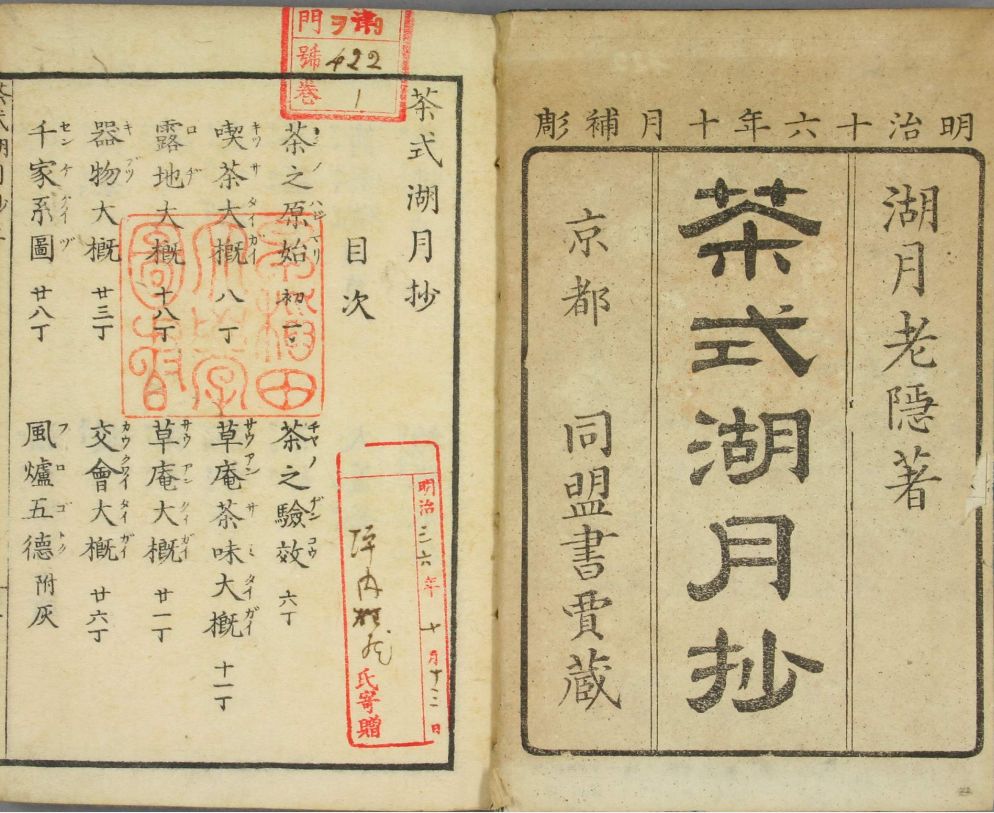 明治十六年十月補彫
湖月老隠著
茶式湖月抄
京都 同盟書賈蔵
門 ヲ
號 422
巻 1
茶式湖月抄
目次
茶之原始 初一丁 茶之驗效 六丁
喫茶大概 八丁 草庵茶味大概 十一丁
露地大概 十八丁 草庵大概 廿一丁
器物大概 廿三丁 交會大概 廿六丁
千家系圖 廿八丁 風爐五德 附灰
明治三六年十月十三日
坪内雄蔵
氏寄贈